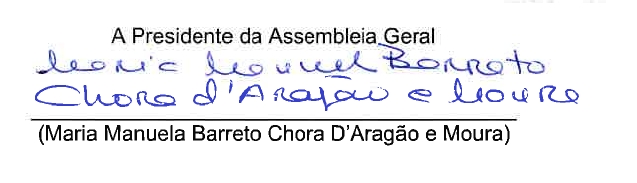 A Presidente da Assembleia Geral
Maria Manuel Barreto
Chora d'Aragão e Moura
(Maria Manuela Barreto Chora D'Aragão e Moura)